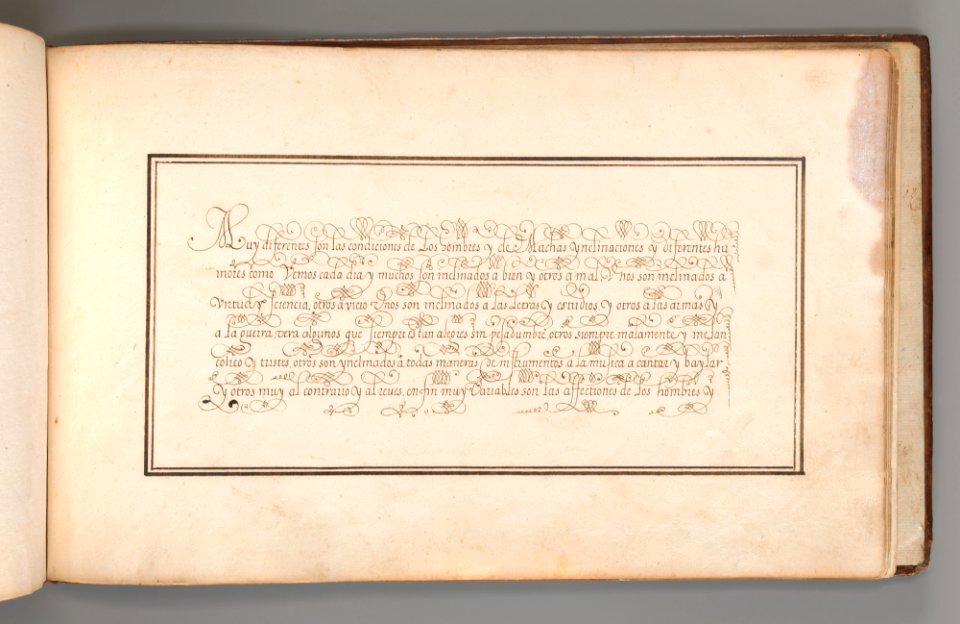 Muy diferentes son las condiciones de Los hombres y de Machas ynclinaciones y diferentes hu
mores como Vemos cada dia y muchos son inclinados a bien y otros a mal, Vnos son inclinados a
Virtud y sciencia, otros a vicio Vnos son inclinados a las letras y estudios y otros a las armas y
a la guerra, vera algunos que siempre estan alegres sin pesadumbre, otros siempre malamente y melan
colico y tristes, otros son ynclinados a todas maneras de instrumentos a la musica a cantar y baylar
y otros muy al contrario y al reves, en fin muy Variablio son las affectiones de los hombres y